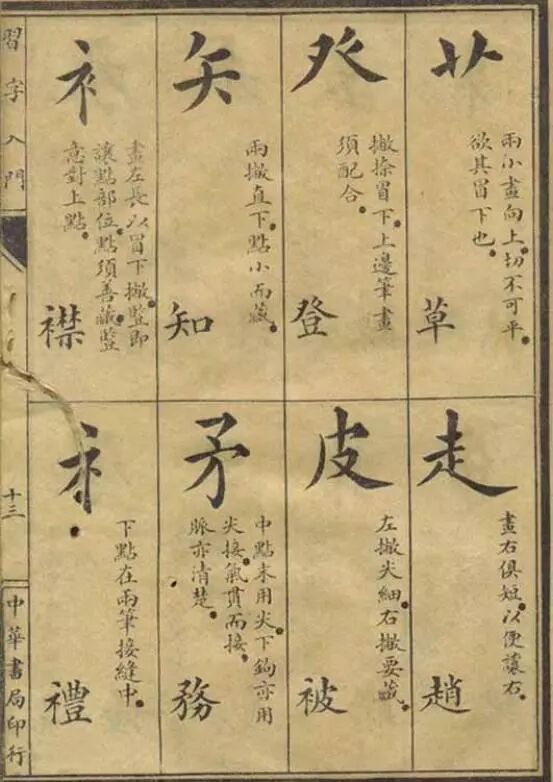 艹
兩小畫向上。切不可平。
欲其冒下也。
草
癶
撇捺冒下。上邊筆畫
須配合。
登
矢
兩撇直下。點小而藏。
知
衤
畫左長以冒下撇。豎即
讓點部位。點須善藏。豎
意對上點。
襟
走
畫右俱短。以便讓右。
趙
皮
左撇尖細。右撇要藏。
被
矛
中點末用尖。下鉤亦用
尖接。氣貫而接。
脈亦清楚。
務
礻
下點在兩筆接縫中。
禮
習字入門
十三
中華書局印行